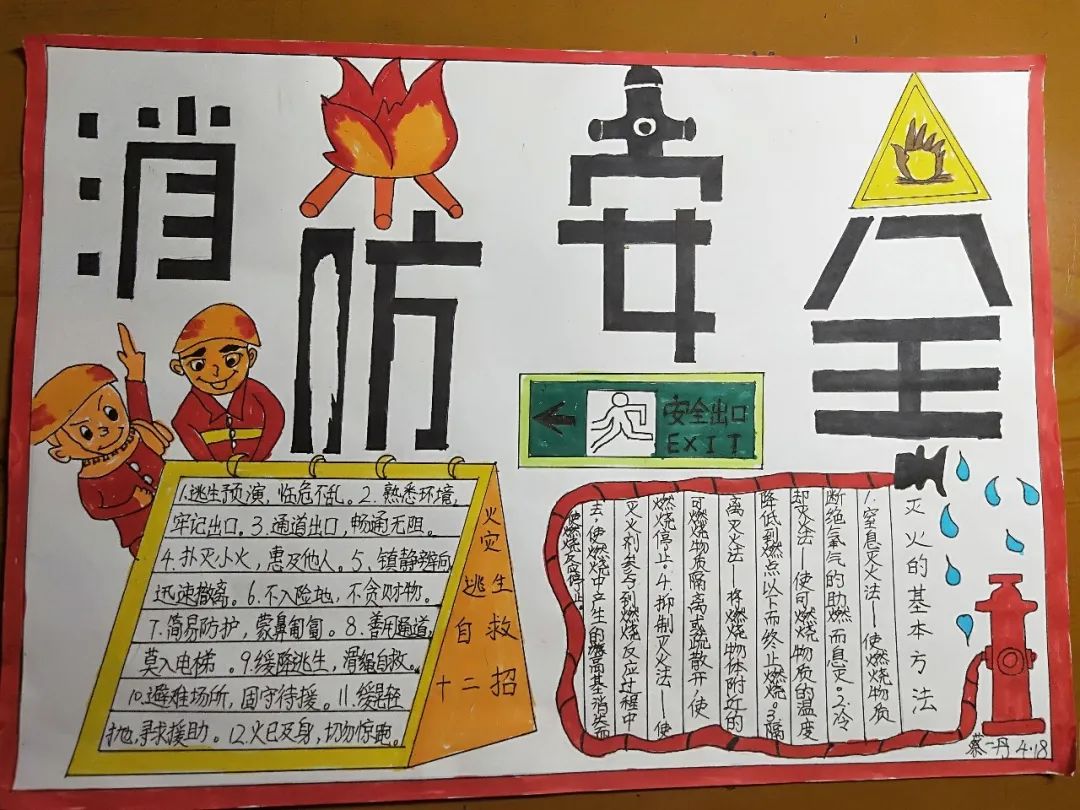 消防安全
安全出口
EXIT
1.逃生预演,临危不乱。2.熟悉环境,
牢记出口。3.通道出口,畅通无阻。
4.扑灭小火,惠及他人。5、镇静辨向
迅速撤离。6.不入险地,不贪财物。
7.简易防护,蒙鼻匍匐。8.善用通道,
莫入电梯。9.缓降逃生,滑绳自救。
10.避难场所,固守待援。11.缓晃轻
抛,寻求援助。12.火已及身,切勿惊跑。
火灾
逃生
自救
十二招
灭火的基本方法
1.窒息灭火法——使燃烧物质
断绝氧气的助燃而息灭。2.冷
却灭火法——使可燃烧物质的温度
降低到燃点以下而终止燃烧。3.隔
离灭火法 将燃烧物体附近的
可燃烧物质隔离或疏散开,使
燃烧停止。4.抑制灭火法——使
灭火剂参与到燃烧反应过程中
去,使燃烧中产生的离基消失而
使燃烧反应停止。
蔡一丹 4.18